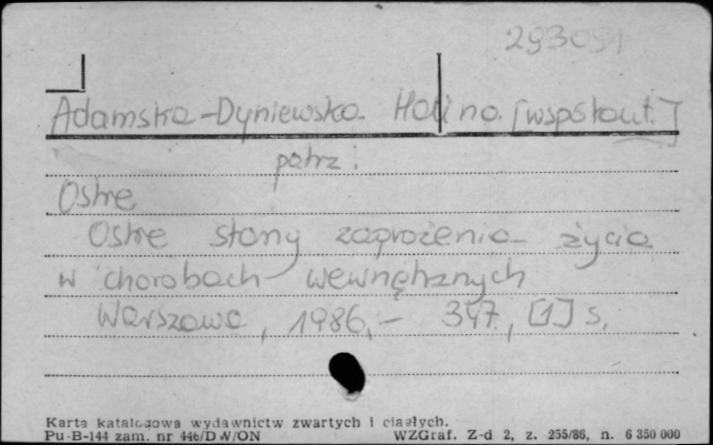 293091
Adamska-Dyniewska Halina [współaut.]
patrz:
Ostre
Ostre stany zagrożenia życia
w chorobach wewnętrznych
Warszawa, 1986.- 347, [1] s.
Karta katalogowa wydawnictw zwartych i ciągłych.
Pu-B-144 zam. nr 446/DW/ON WZGraf. Z-d 2, z. 255/86, n. 6 350 000